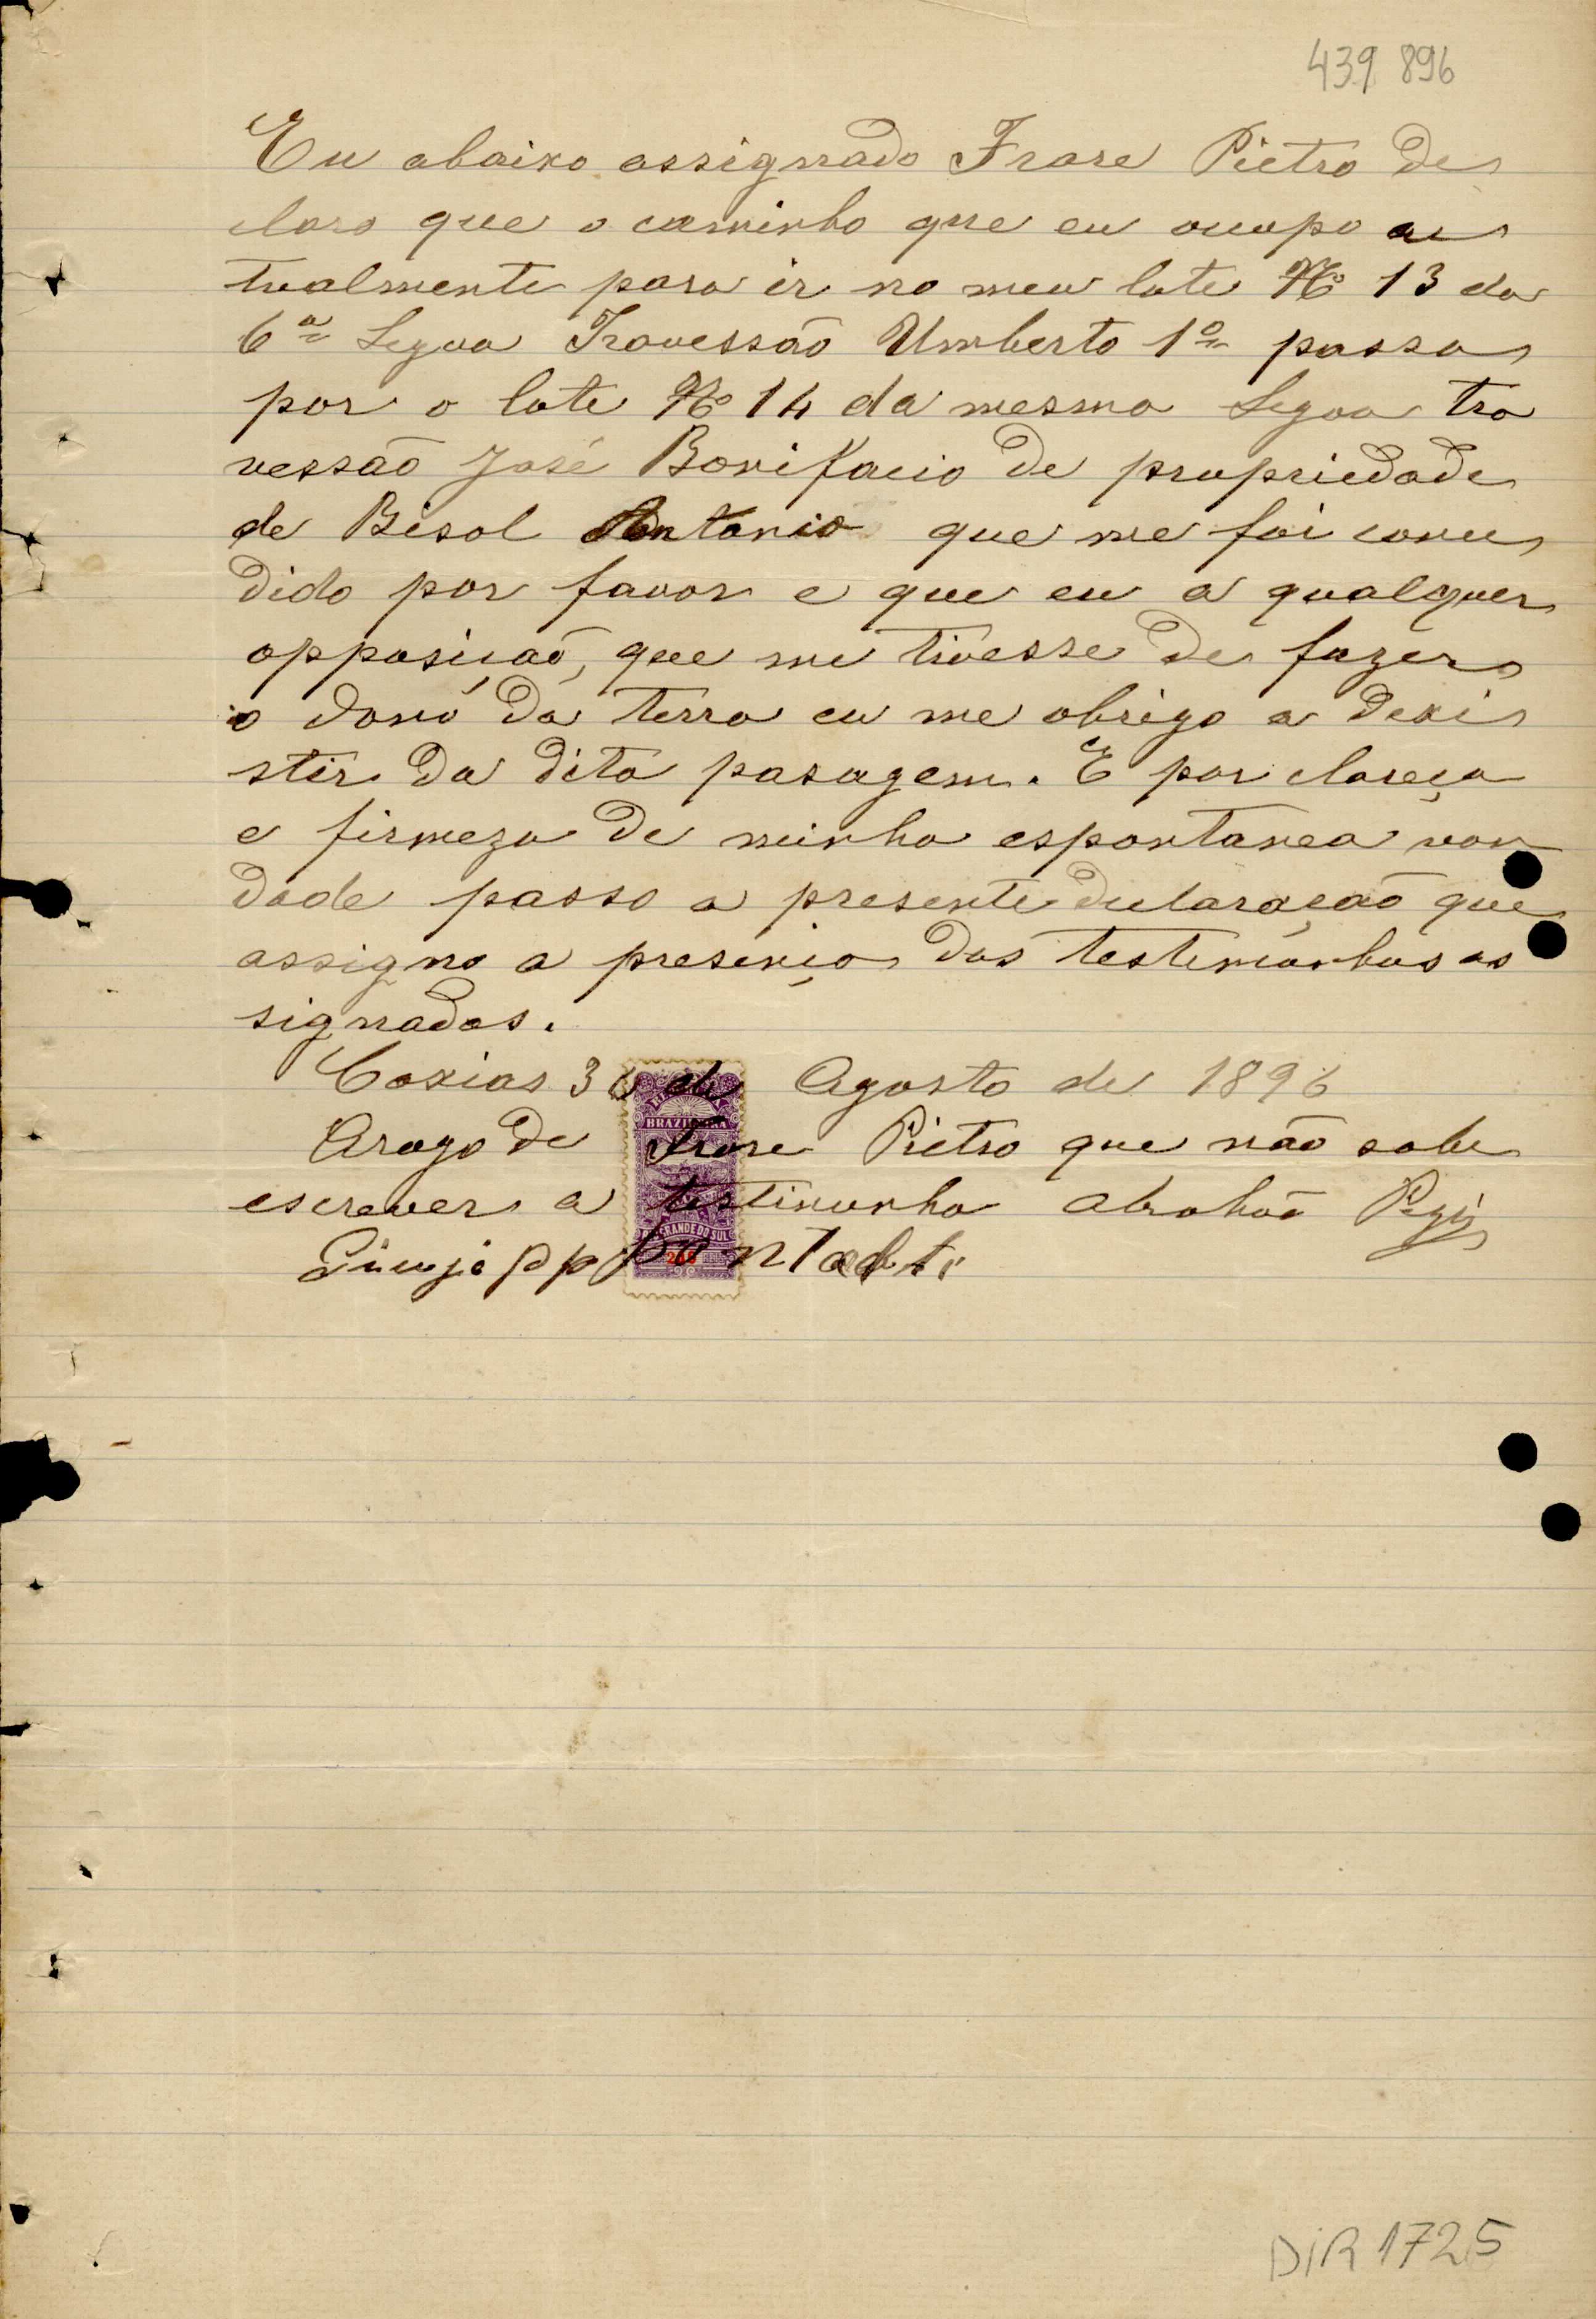 439 896
Eu abaixo assignado Frare Pietro de
claro que o caminho que eu occupo ac
tualmente para ir no meu lote Nº 13 da
6ª Legoa Travessão Umberto 1º passa
por o lote Nº 14 da mesma Legoa tra
vessão José Bonifacio de propriedade
de Bisol Antonio que me foi conce
dido por favor e que eu a qualquer
opposição, que me tivesse de fazer
o dono da terra eu me obrigo a dexi
stir da dita pasagem. E por clareça
e firmeza de minha espontanea von
dade passo a presente declaração que
assigno a presença das testimonhas as
signadas.
Caxias 30 de Agosto de 1896
Arogo de Frare Pietro que não sabe
escrever a testimunha Abrahão
BRAZILEIRA
RIO GRANDE DO SUL
200
DIR 1725